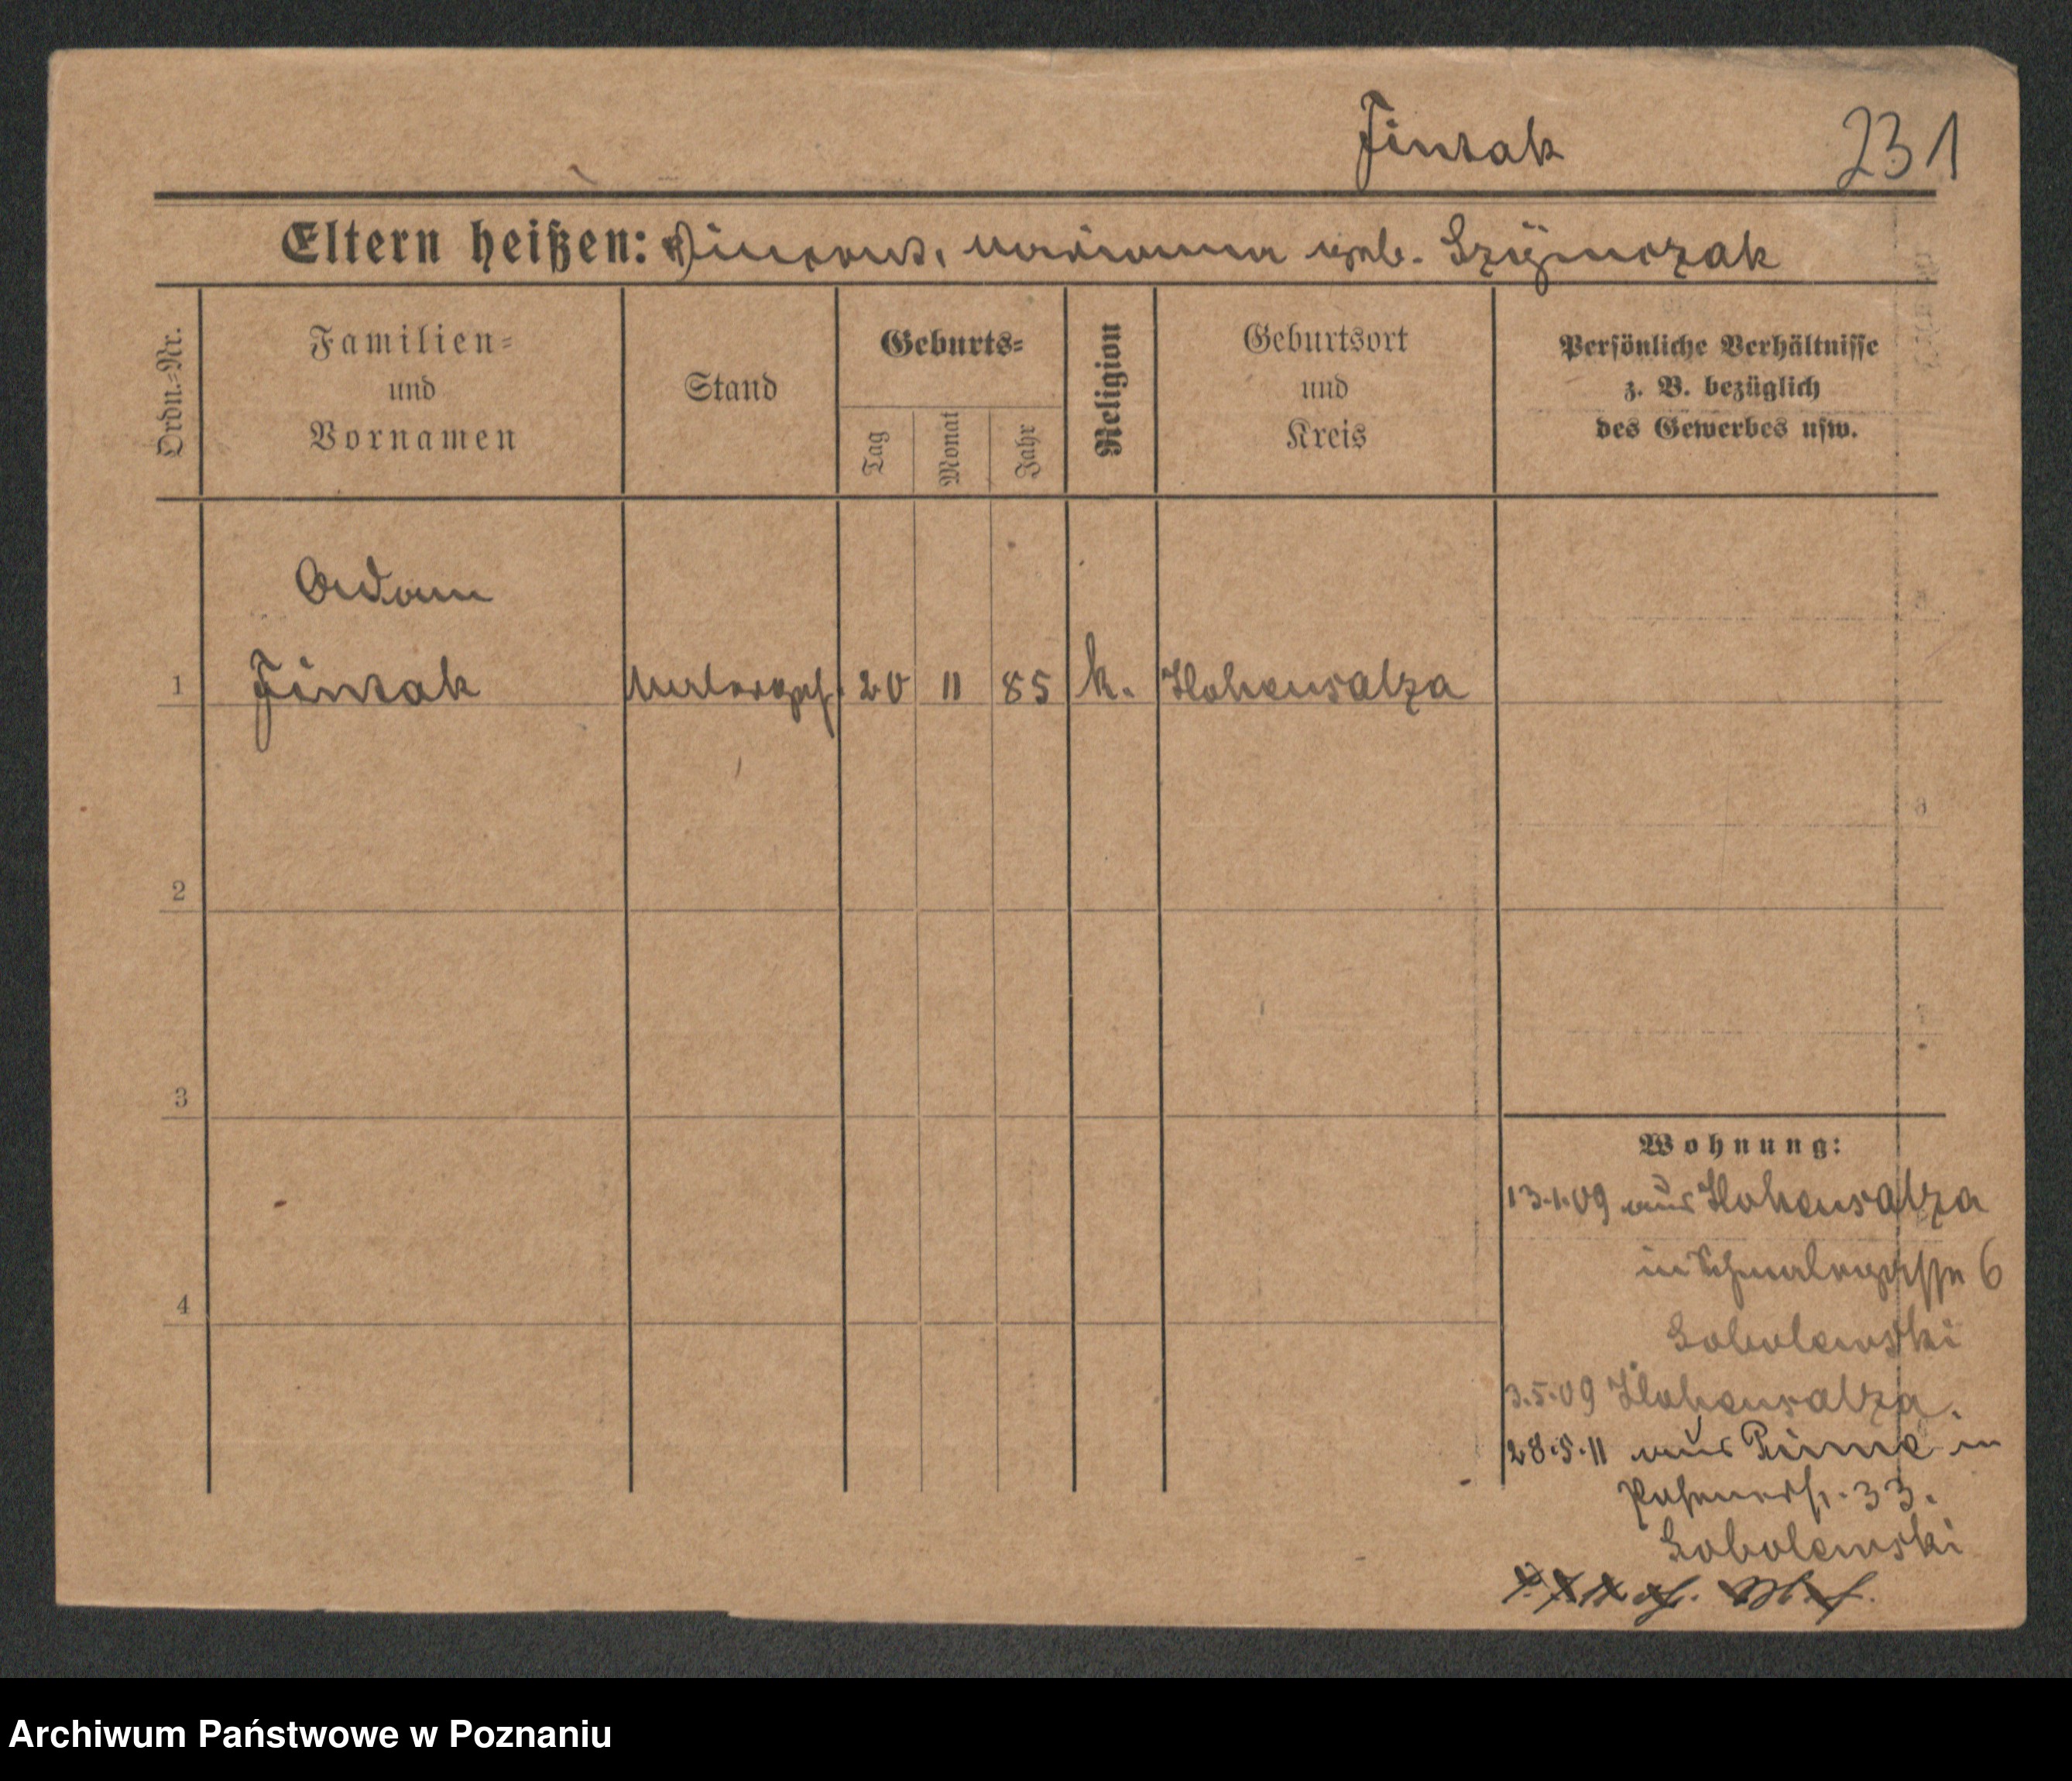 Fintak 231
Eltern heißen: Vincent, Marianna geb. Szymczak
Ordn.-Nr.
Familien-
und
Vornamen
Stand
Geburts-
Tag
Monat
Jahr
Religion
Geburtsort
und
Kreis
Persönliche Verhältnisse
z. B. bezüglich
des Gewerbes usw.
Adam
1 Fintak Malergeh. 20 11 85 k. Hohensalza
2
3
4
Wohnung:
13.1.09 aus Hohensalza
in 6
Sobolewski
3.5.09 Hohensalza.
28.5.11 aus in
Posenerstr. 33.
Sobolewski
Archiwum Państwowe w Poznaniu